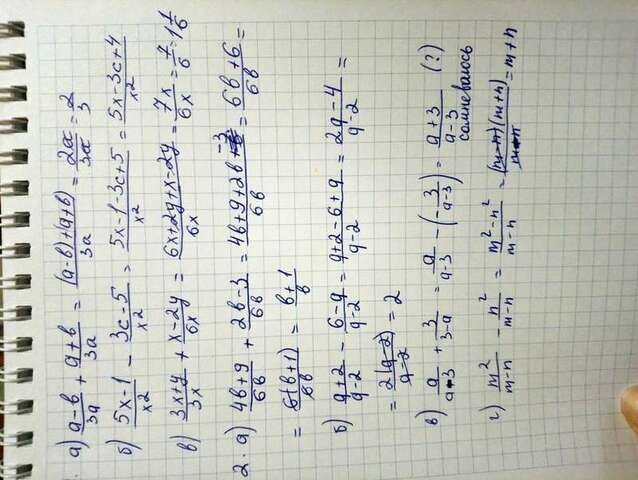 а) (а-в)/3а + (а+в)/3а = ((а-в)+(а+в))/3а = 2а/3а = 2/3
б) (5x-1)/x² - (3c-5)/x² = (5x-1-3c+5)/x² = (5x-3c+4)/x²
в) (3x+y)/3x + (x-2y)/6x = (6x+2y+x-2y)/6x = 7x/6x = 7/6 = 1 1/6
2. а) (4в+9)/6в + (2в-3)/6в = (4в+9+2в-3)/6в = (6в+6)/6в =
= 6(в+1)/6в = (в+1)/в
б) (q+2)/(q-2) - (6-q)/(q-2) = (q+2-6+q)/(q-2) = (2q-4)/(q-2) =
= 2(q-2)/(q-2) = 2
в) а/(а-3) + 3/(3-а) = а/(а-3) - (-3/(а-3)) = (а+3)/(а-3) (?)
сомневаюсь
г) m²/(m-n) - n²/(m-n) = (m²-n²)/(m-n) = (m-n)(m+n)/(m-n) = m+n